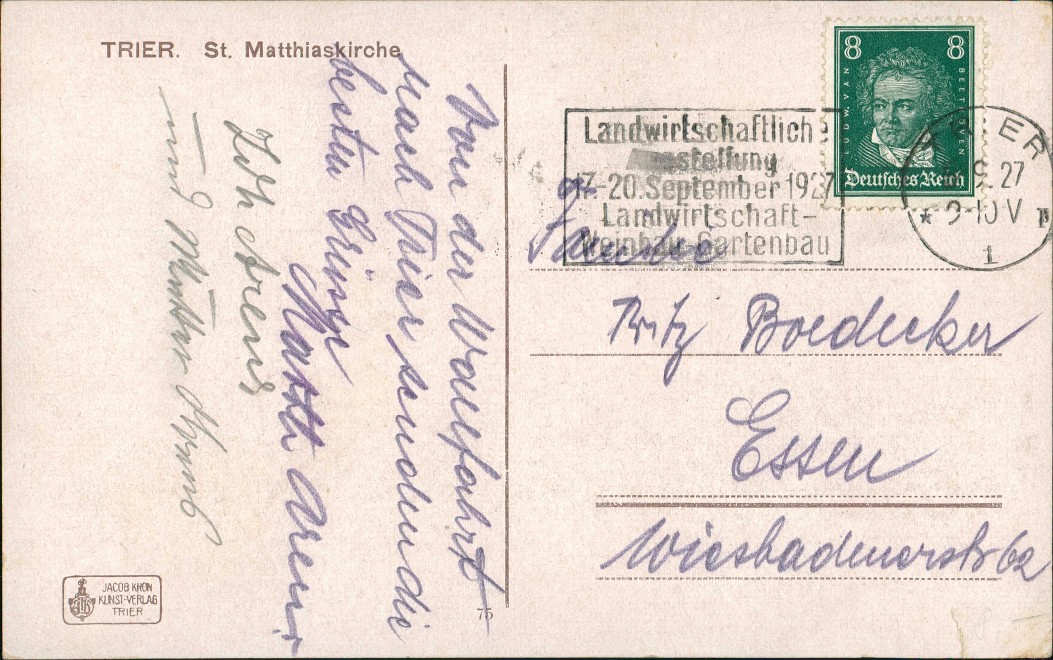 TRIER. St. Matthiaskirche
Von der Wallfahrt
nach Trier senden die
besten Grüsse
Matth Arens.
Idth Arens
und Mutter
JACOB KRON
KUNST-VERLAG
TRIER
75
8 8
LUDW. VAN BEETHOVEN
Deutsches Reich
Landwirtschaftlich
stellung
17.-20. September 1927
Landwirtschaft-
Weinbau-Gartenbau
TRIER
9.27
* 9-10 V
1
Familie
Fritz Boedecker
Essen
Wiesbadenerstr 62